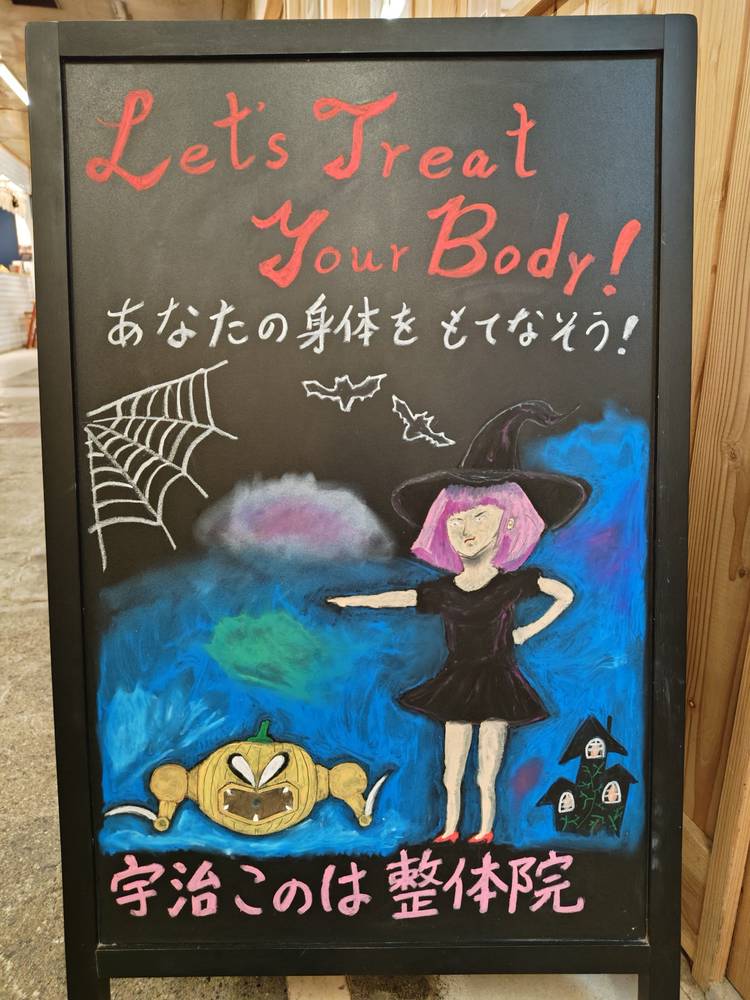 Let's Treat
Your Body!
あなたの身体を もてなそう!
宇治このは 整体院